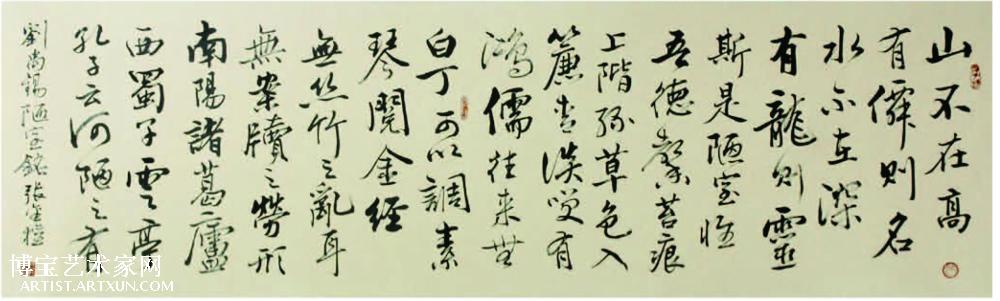 山不在高
有僊則名
水不在深
有龍則靈
斯是陋室惟
吾德馨苔痕
上階綠草色入
簾青談笑有
鴻儒往来無
白丁可以調素
琴閱金經
無丝竹之亂耳
無案牘之勞形
南陽諸葛廬
西蜀子雲亭
孔子云何陋之有
劉禹錫陋室銘 張
博宝艺术家网
ARTIST.ARTXUN.COM